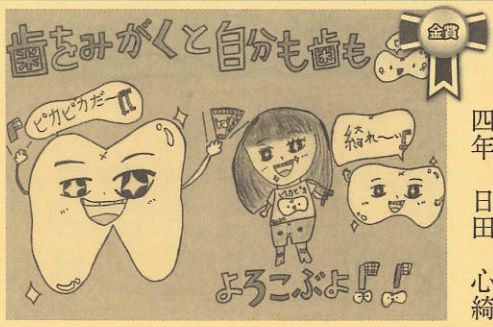 歯をみがくと自分も歯も
金賞
ピカピカだー!!
綺れ〜い!!
よろこぶよ!!
四年 日田 心綺